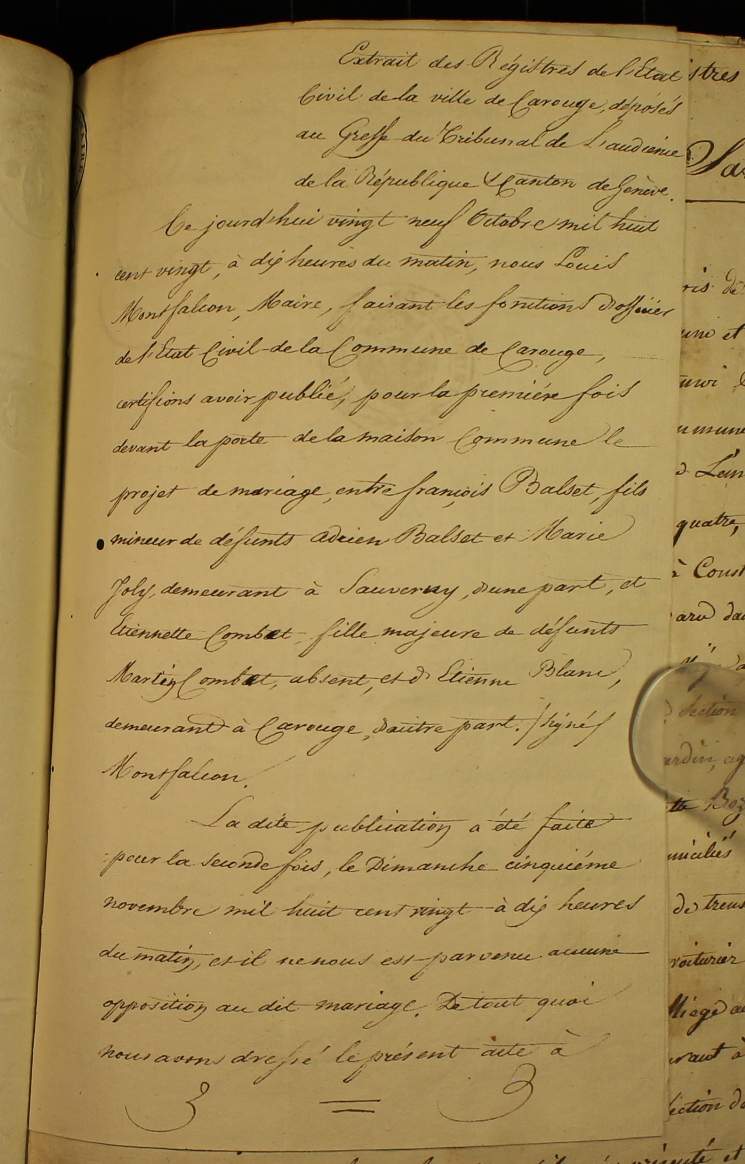 Extrait des Régistres de l'Etat
Civil de la ville de Carouge, déposés
au Greffe du Tribunal de L'audience
de la République & Canton de Genève.
Ce jourd'hui vingt neuf Octobre mil huit
cent vingt, à dix heures du matin, nous Louis
Montfalcon, Maire, faisant les fonctions d'officier
de l'Etat Civil de la Commune de Carouge,
certifions avoir publié, pour la première fois
devant la porte de la maison Commune le
projet de mariage, entre françois Balset, fils
mineur de défunts adrien Balset et Marie
Joly, demeurant à Sauverny, d'une part, et
Etiennette Combet, fille majeure de défunts
Martin Combet, absent, et d'Etienne Blanc,
demeurant à Carouge, d'autre part. /signé/
Montfalcon.
La dite publication a été faite
pour la seconde fois, le Dimanche cinquiéme
novembre mil huit cent vingt à dix heures
du matin, et il ne nous est parvenu aucune
opposition au dit mariage. De tout quoi
nous avons dressé le présent acte à
istres
quatre,
section
de